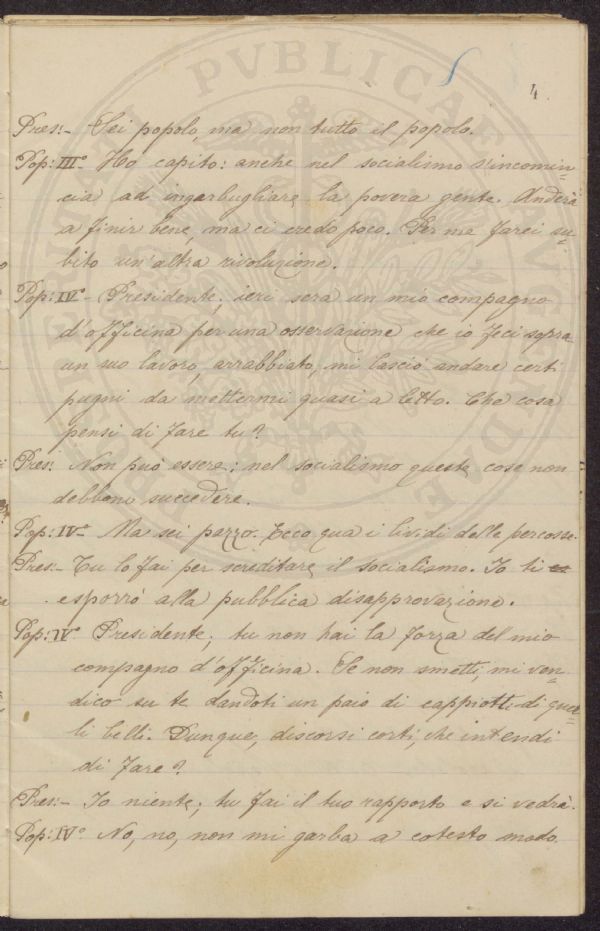 4.
Pres:- Sei popolo, ma non tutto il popolo.
Pop: III° Ho capito: anche nel socialismo s'incomin=
cia ad ingarbugliare la povera gente. Anderà
a finir bene, ma ci credo poco. Per ma farei su=
bito un'altra risoluzione.
Pop: IV°- Presidente, ieri sera un mio compagno
d'officina per una osservazione che io feci sopra
un suo lavoro, arrabbiato, mi lasciò andare certi
pugni da mettermi quasi a letto. Che cosa
pensi di fare tu?
Pres: Non può essere; nel socialismo queste cose non
debbono succedere.
Pop: IV° Ma sei pazzo. Ecco qua i lividi delle percosse.
Pres:- Tu lo fai per screditare il socialismo. Io ti
esporrò alla pubblica disapprovazione.
Pop: IV° Presidente, tu non hai la forza del mio
compagno d'officina. Se non smetti, mi ven=
dico su te dandoti un paio di cappiotti di quel=
li belli. Dunque, discorsi corti, che intendi
di fare?
Pres:- Io niente; tu fai il tuo rapporto e si vedrà.
Pop: IV° No, no, non mi garba a cotesto modo.
PVBLICAE